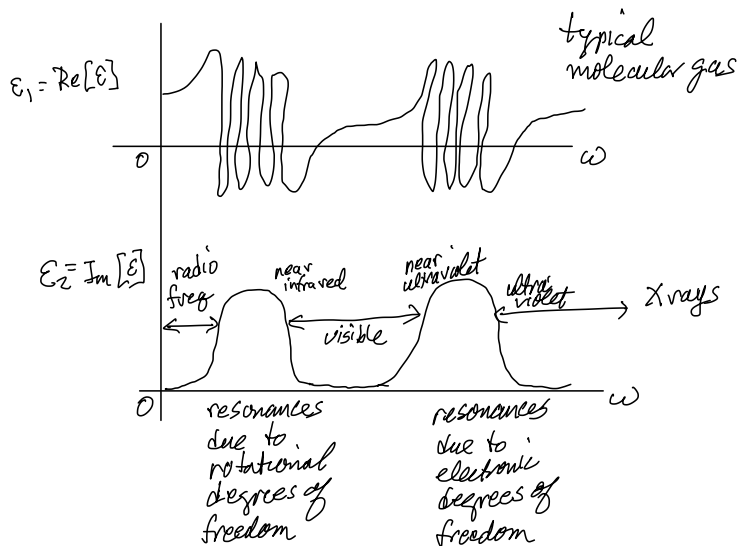 typical
molecular gas
ε₁ = Re[ε]
0
ω
ε₂ = Im[ε]
radio
freq
near
infrared
visible
near
ultraviolet
ultra
violet
X rays
0
ω
resonances
due to
rotational
degrees of
freedom
resonances
due to
electronic
degrees of
freedom